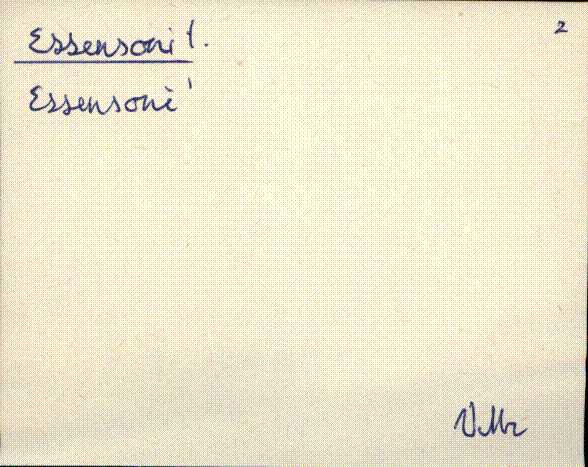 2
Essensoni!.
Essensoni'
VMr